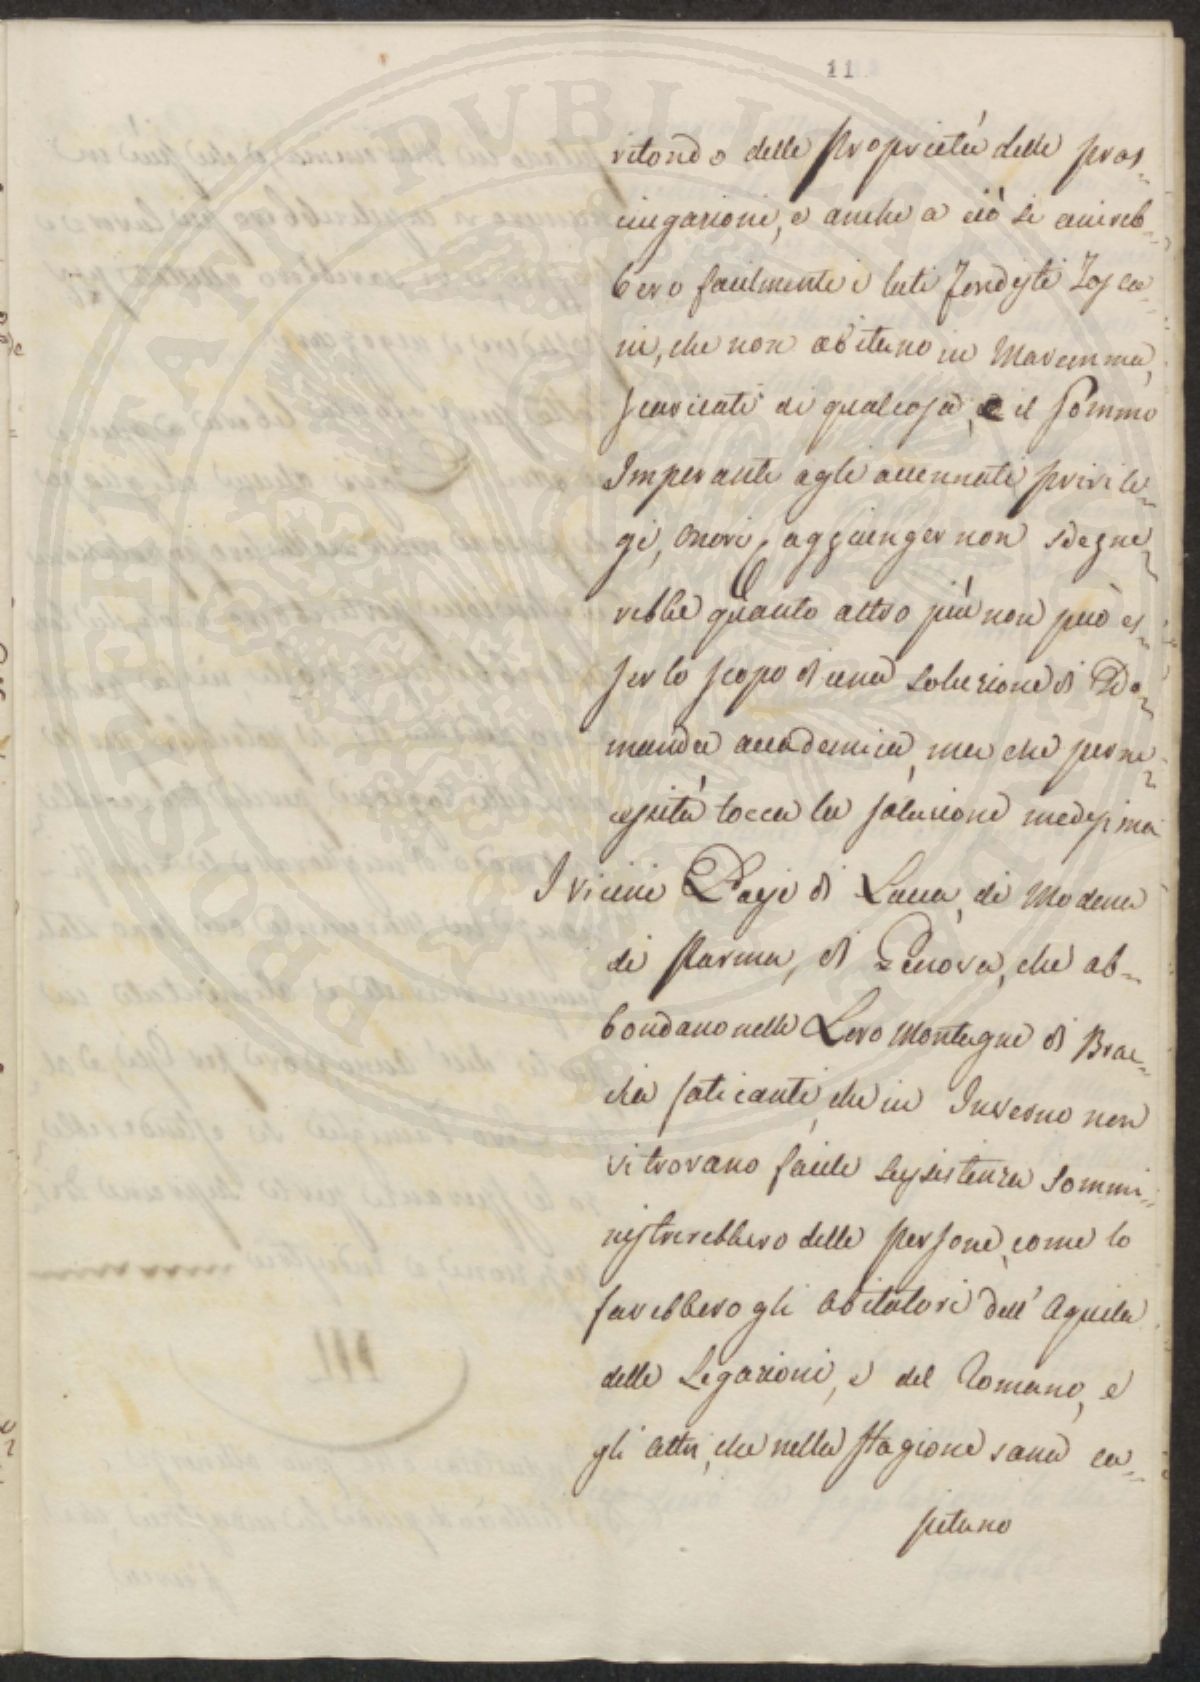 11
ritondo delle Proprietà delle pros=
ciugazioni, e anche a ciò si auireb=
bero facilmente i tuti Fondisti Tosca=
ni, che non abitano in Maremma,
scaricati di qualcosa, e il sommo
Imperante agli accennati privile=
gi, onori, aggiunger non sdegne=
rebbe quanto altro più non può es=
ser lo scopo di una soluzione di Do=
manda accademica, ma che per ne=
cessità tocca la soluzione medesima
I vicini Paesi di Lucca, di Modena
di Parma, di Genova, che ab=
bondano nelle Loro Montagne di Brac=
cia faticanti, che in Inverno non
vi trovano facile sussistenza sommi=
nistrerebbero delle persone, come lo
farebbero gli abitatori dell' Aquila
delle Legazioni, e del Romano, e
gli altri, che nella stagione sana ca=
pitano